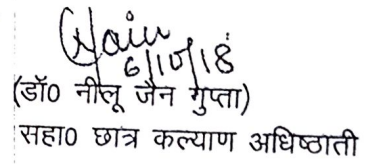 Jain
6/10/18
(डॉ0 नीलू जैन गुप्ता)
सहा0 छात्र कल्याण अधिष्ठाती